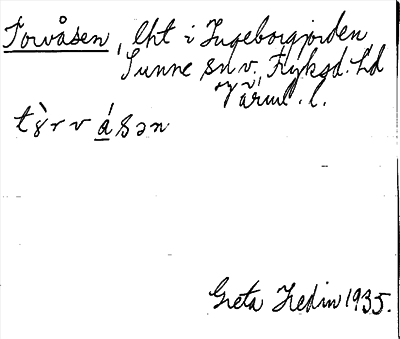 Torvåsen, lht i Ingeborgjorden
Sunne sn v. Fryksd. hd
Värml. l.
Greta Hedin 1935.